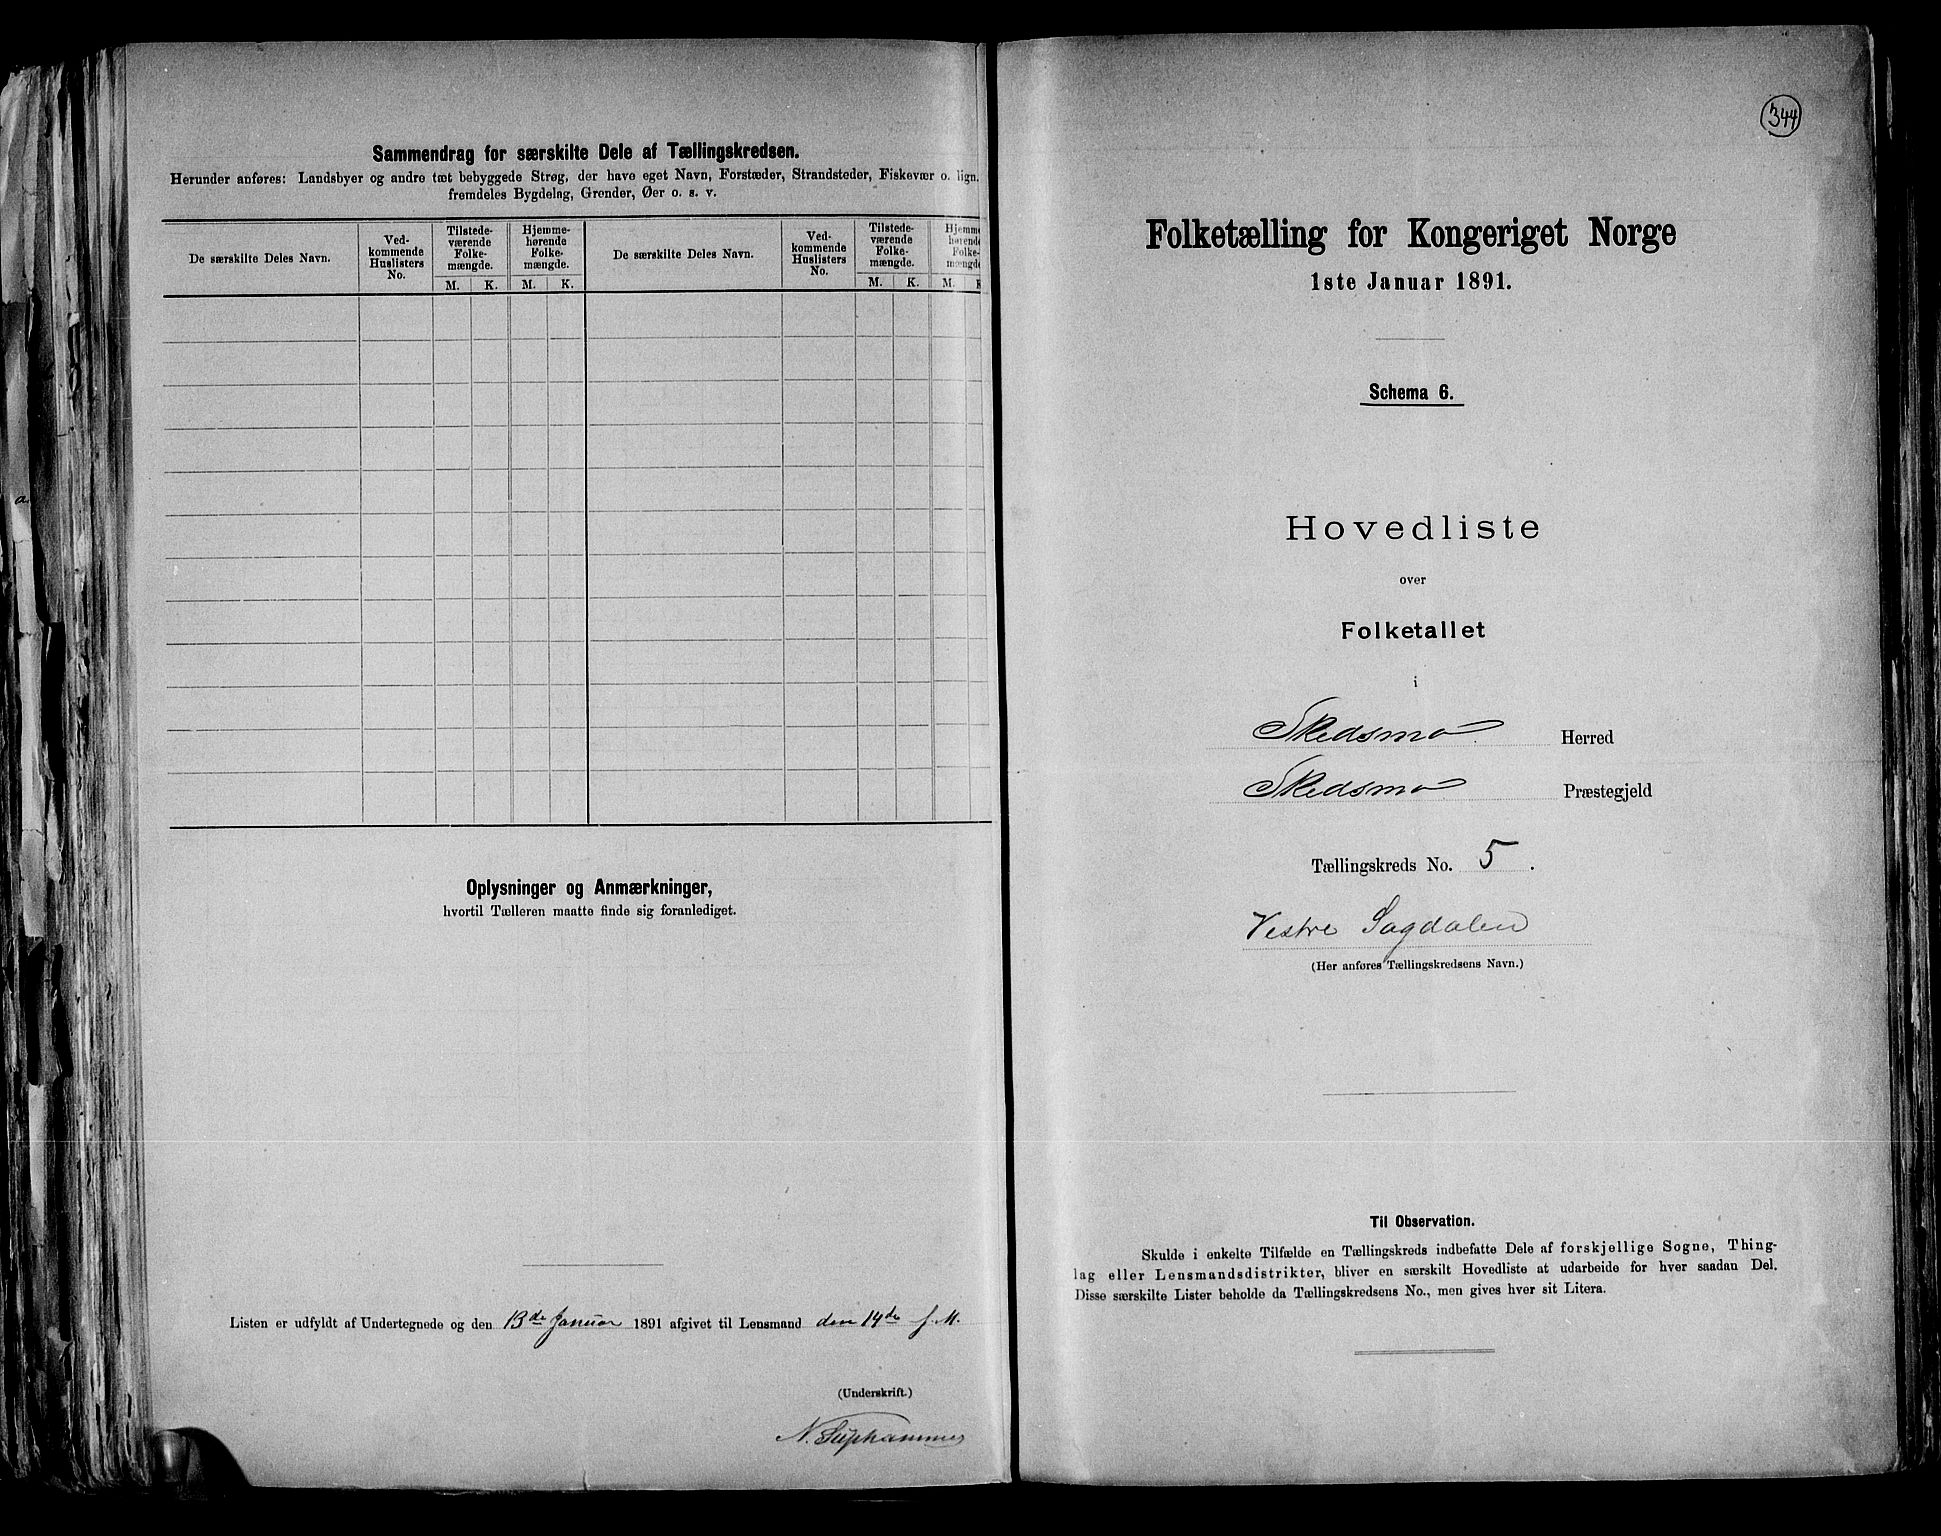 Sammendrag for særskilte Dele af Tællingskredsen.
Herunder anføres: Landsbyer og andre tæt bebyggede Strøg, der have eget Navn, Forstæder, Strandsteder, Fiskevær o. lign.
fremdeles Bygdelag, Grender, Øer o. s. v.
De særskilte Deles Navn.
Ved-
kommende
Huslisters
No.
Tilstede-
værende
Folke-
mængde.
Hjemme-
hørende
Folke-
mængde.
De særskilte Deles Navn.
Ved-
kommende
Huslisters
No.
Tilstede-
værende
Folke-
mængde.
Hjemme
hørende
Folke-
mængde
M. K. M. K. M. K. M. K
Oplysninger og Anmærkninger,
hvortil Tælleren maatte finde sig foranlediget.
Listen er udfyldt af Undertegnede og den 13de Januar 1891 afgivet til Lensmand den 14de f. M.
(Underskrift.)
N.
344
Folketælling for Kongeriget Norge
1ste Januar 1891.
Schema 6.
Hovedliste
over
Folketallet
i
Skedsmo Herred
Skedsmo Præstegjeld
Tællingskreds No. 5.
Vestre Sagdalen
(Her anføres Tællingskredsens Navn.)
Til Observation.
Skulde i enkelte Tilfælde en Tællingskreds indbefatte Dele af forskjellige Sogne, Thing-
lag eller Lensmandsdistrikter, bliver en særskilt Hovedliste at udarbeide for hver saadan Del.
Disse særskilte Lister beholde da Tællingskredsens No., men gives hver sit Litera.